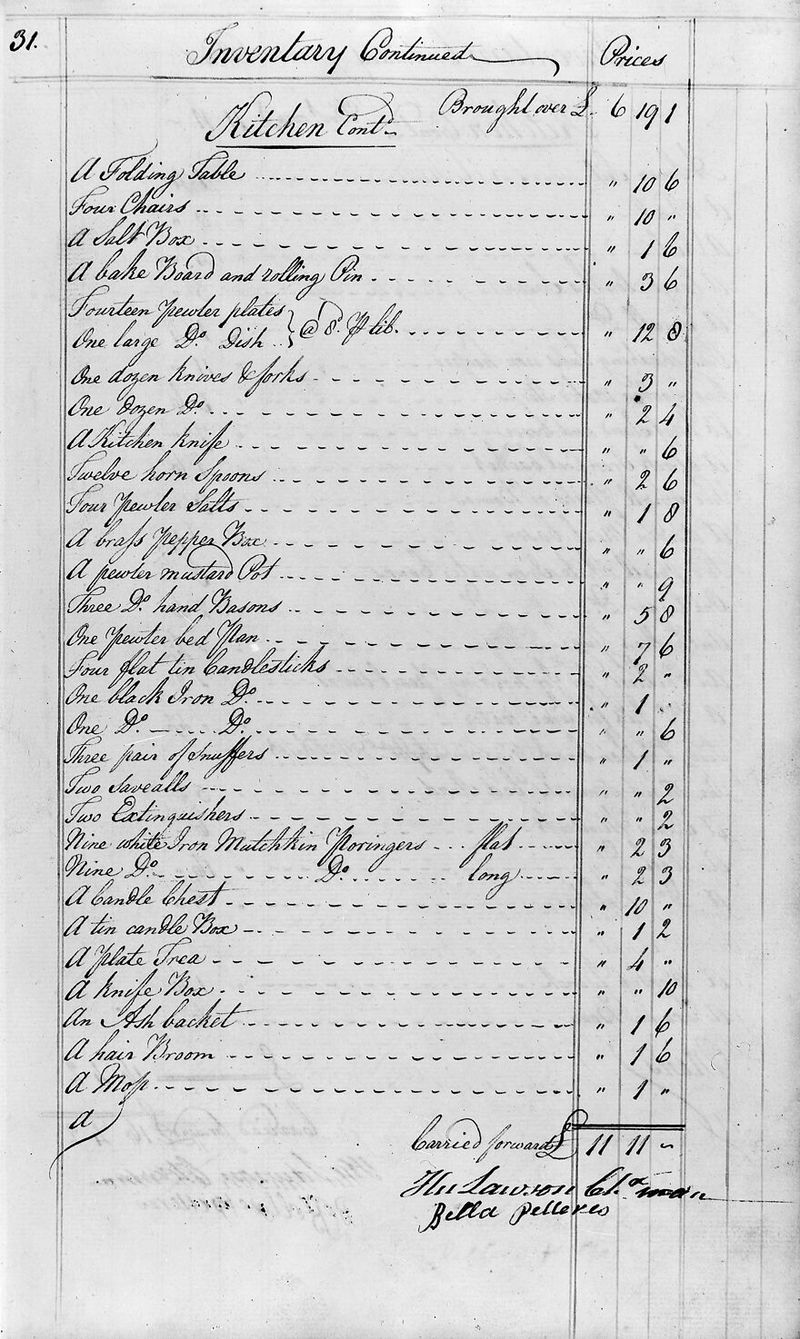 31.
Inventary Continued Prices
Brought over £ 6 19 1
Kitchen Contd
A Folding Table " 10 6
Four Chairs " 10 "
A Salt Box " 1 6
A bake Board and rolling Pin " 3 6
Fourteen pewter plates
One large Do Dish } @ 8d ⅌ lib. " 12 8
One dozen knives & forks " 3 "
One dozen Do " 2 4
A Kitchen knife " " 6
Twelve horn Spoons " 2 6
Four pewter Salts " 1 8
A brass pepper Box " " 6
A pewter mustard Pot " " 9
Three Do hand Basons " 5 8
One pewter bed Pan " 7 6
Four flat tin Candlesticks " 2 "
One black Iron Do " 1 "
One Do Do " " 6
Three pair of Snuffers " 1 "
Two Savealls " " 2
Two Extinguishers " " 2
Nine white Iron Mutchkin Poringers flat " 2 3
Nine Do Do long " 2 3
A Candle Chest " 10 "
A tin candle Box " 1 2
A plate Trea " 4 "
A knife Box " " 10
An Ash backet " 1 6
A hair Broom " 1 6
A Mop " 1 "
A
Carried forward £ 11 11 "
Lawson
Bella